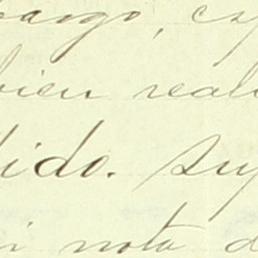 bargo, es
bien real
dido. Su
i nota d